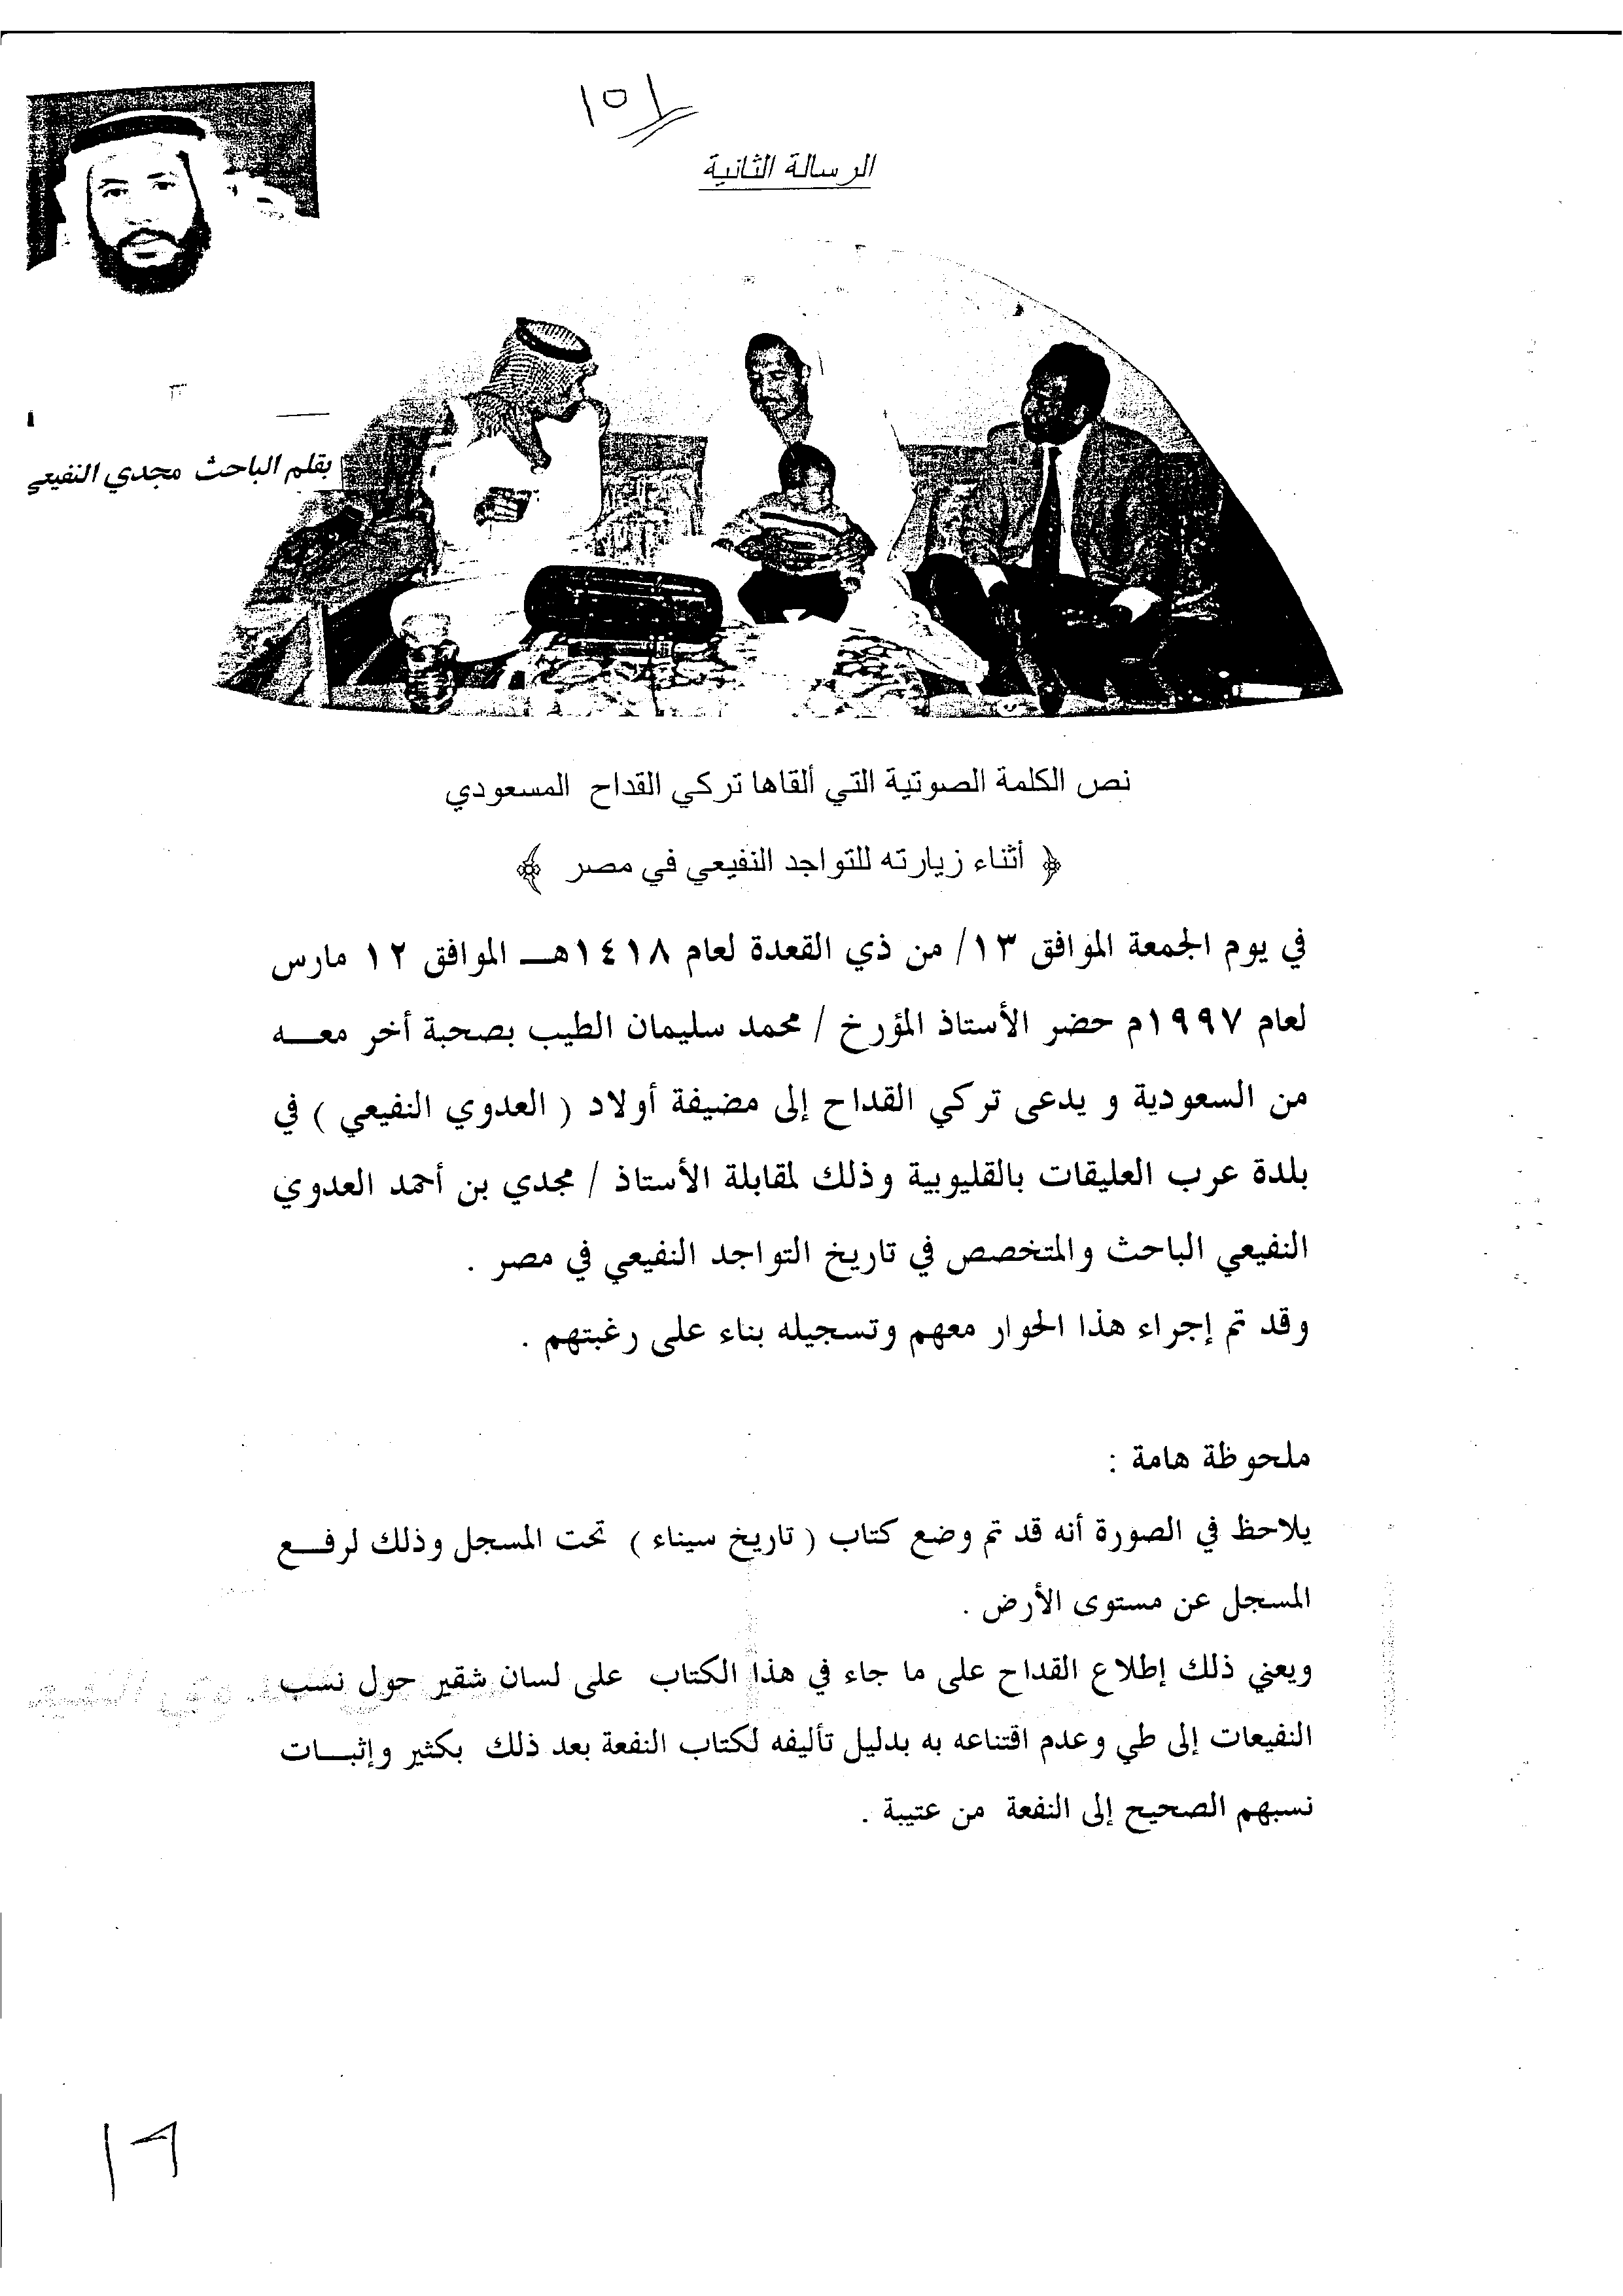 ١٥١
الرسالة الثانية
بقلم الباحث مجدي النفيعي
نص الكلمة الصوتية التي ألقاها تركي القداح المسعودي
﴿ أثناء زيارته للتواجد النفيعي في مصر ﴾
في يوم الجمعة الموافق ١٣/ من ذي القعدة لعام ١٤١٨هـ الموافق ١٢ مارس
لعام ١٩٩٧م حضر الأستاذ المؤرخ / محمد سليمان الطيب بصحبة أخر معه
من السعودية و يدعى تركي القداح إلى مضيفة أولاد ( العدوي النفيعي ) في
بلدة عرب العليقات بالقليوبية وذلك لمقابلة الأستاذ / مجدي بن أحمد العدوي
النفيعي الباحث والمتخصص في تاريخ التواجد النفيعي في مصر .
وقد تم إجراء هذا الحوار معهم وتسجيله بناء على رغبتهم .
ملحوظة هامة :
يلاحظ في الصورة أنه قد تم وضع كتاب ( تاريخ سيناء ) تحت المسجل وذلك لرفع
المسجل عن مستوى الأرض .
ويعني ذلك إطلاع القداح على ما جاء في هذا الكتاب على لسان شقير حول نسب
النفيعات إلى طي وعدم اقتناعه به بدليل تأليفه لكتاب النفعة بعد ذلك بكثير وإثبات
نسبهم الصحيح إلى النفعة من عتيبة .